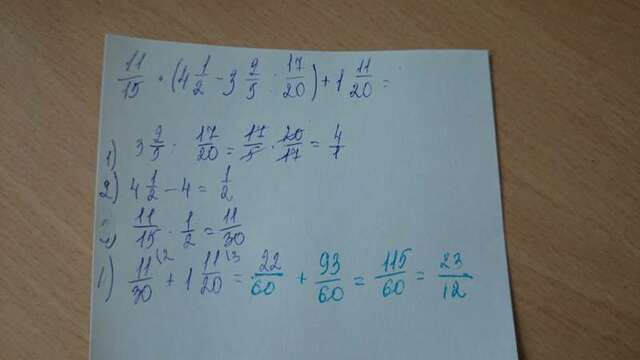 11/15 · (4 1/2 - 3 2/5 : 17/20) + 1 11/20 =
1) 3 2/5 : 17/20 = 17/5 · 20/17 = 4/1
2) 4 1/2 - 4 = 1/2
3) 11/15 · 1/2 = 11/30
4) 11/30 \2 + 1 11/20 \3 = 22/60 + 93/60 = 115/60 = 23/12